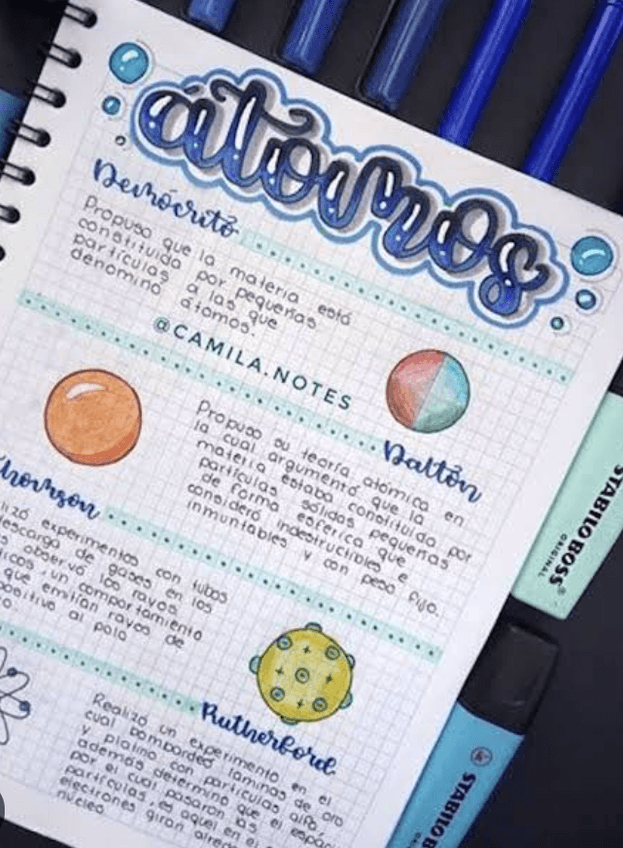 átomos
Demócrito
Propuso que la materia está
constituida por pequeñas
partículas a las que
denominó átomos.
@CAMILA.NOTES
Dalton
Propuso su teoría atómica en
la cual argumentó que la
materia estaba constituida por
partículas sólidas pequeñas
de forma esférica que
consideró indestructibles e
inmuntables y con peso fijo.
Thomson
lizó experimentos con tubos
descarga de gases en los
observó los rayos
icos, un comportamiento
que emitían rayos de
positivo al polo
Rutherford
Realizó un experimento en el
cual bombardeó láminas de oro
y platino con partículas alfa,
además determinó que el espacio
por el cual pasaron las
partículas, es aquel en el
electrones giran
núcleo
STABILO BOSS
ORIGINAL
STABILO B